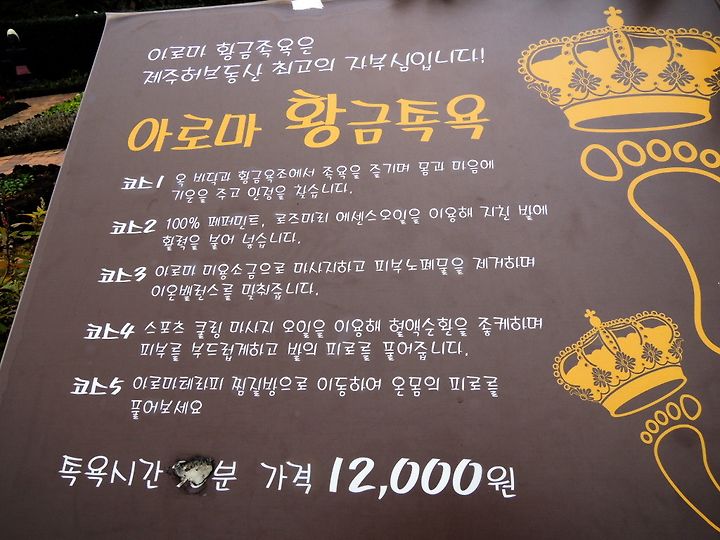 아로마 황금족욕은
제주허브동산 최고의 자부심입니다!
아로마 황금족욕
코스1 옥 바닥과 황금욕조에서 족욕을 즐기며 몸과 마음에
기운을 주고 안정을 찾습니다.
코스2 100% 페퍼민트, 로즈마리 에센스오일을 이용해 지친 발에
활력을 불어 넣습니다.
코스3 아로마 미용소금으로 마사지하고 피부노폐물을 제거하며
이온밸런스를 맞춰줍니다.
코스4 스포츠 쿨링 마사지 오일을 이용해 혈액순환을 좋게하며
피부를 부드럽게하고 발의 피로를 풀어줍니다.
코스5 아로마테라피 찜질방으로 이동하여 온몸의 피로를
풀어보세요
족욕시간 분 가격 12,000원